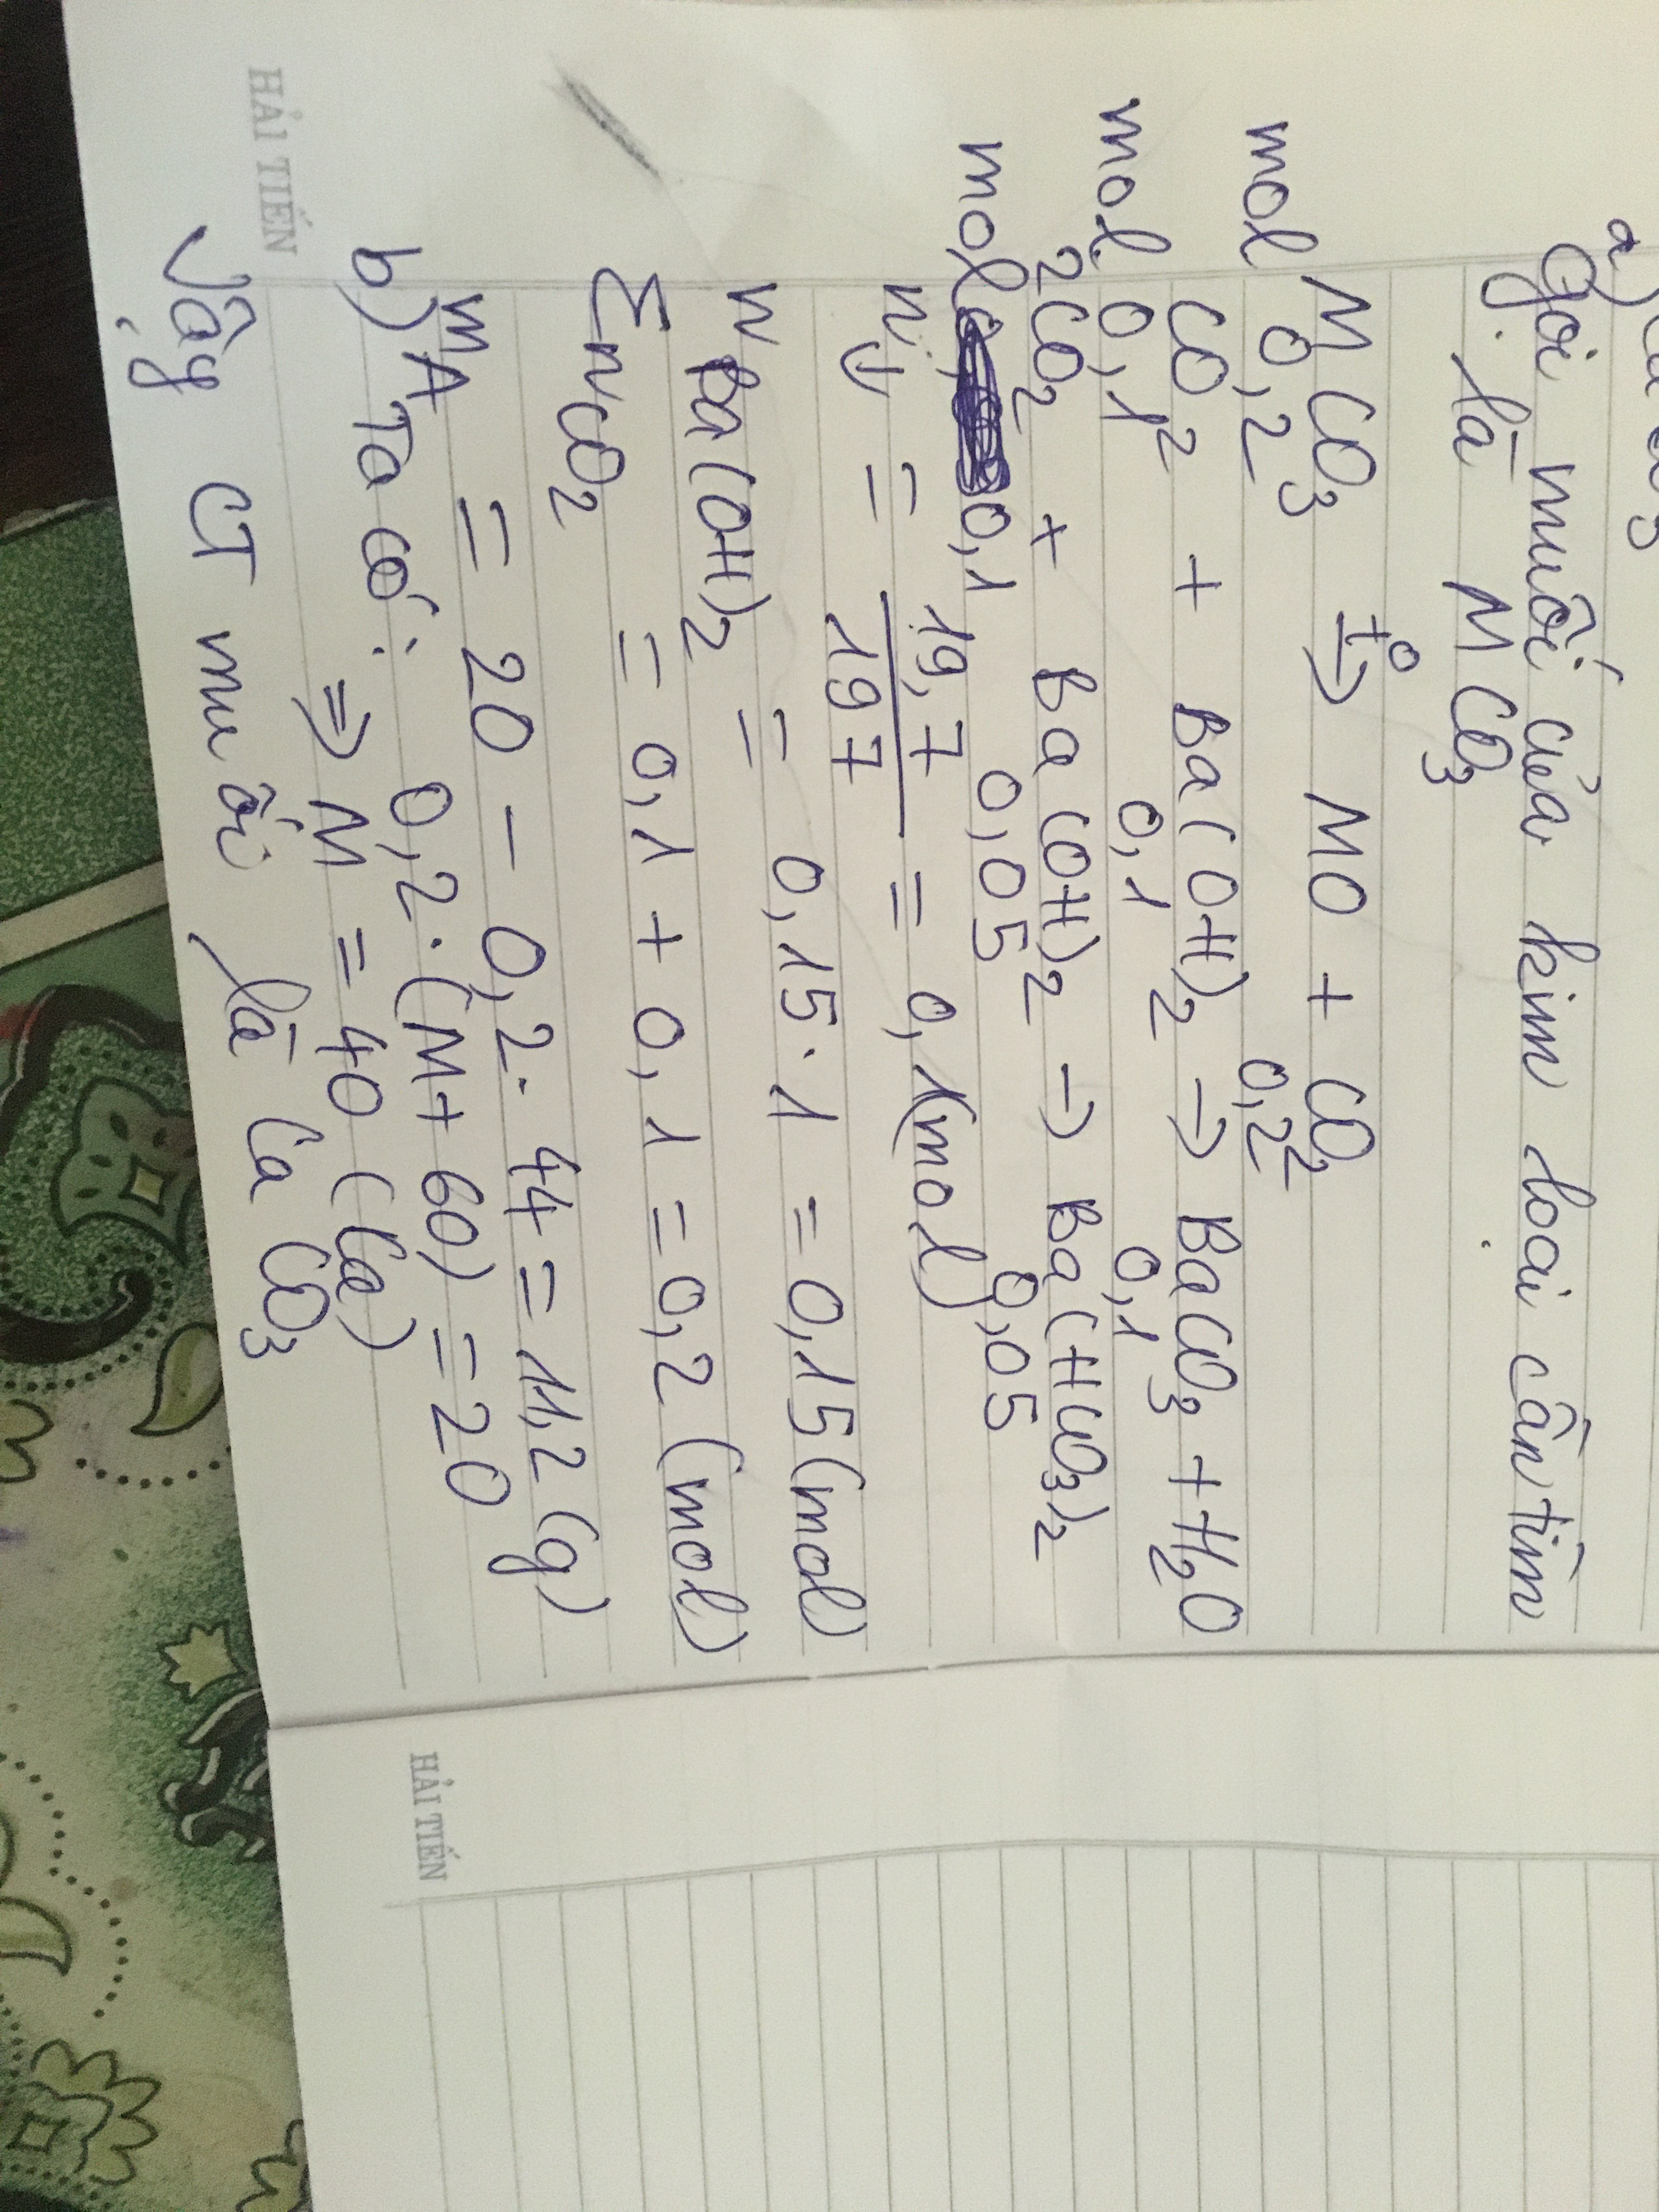 a)
Gọi muối của kim loại cần tìm
là MCO3
MCO3 t°→ MO + CO2
mol 0,2 0,2
CO2 + Ba(OH)2 → BaCO3 + H2O
mol 0,1 0,1 0,1
2CO2 + Ba(OH)2 → Ba(HCO3)2
mol 0,1 0,05 0,05
n↓ = 19,7/197 = 0,1(mol)
nBa(OH)2 = 0,15.1 = 0,15(mol)
ΣnCO2 = 0,1 + 0,1 = 0,2 (mol)
mA = 20 - 0,2.44 = 11,2 (g)
b) Ta có: 0,2.(M+60) = 20
=> M = 40 (Ca)
Vậy CT muối là CaCO3
HẢI TIẾN
HẢI TIẾN